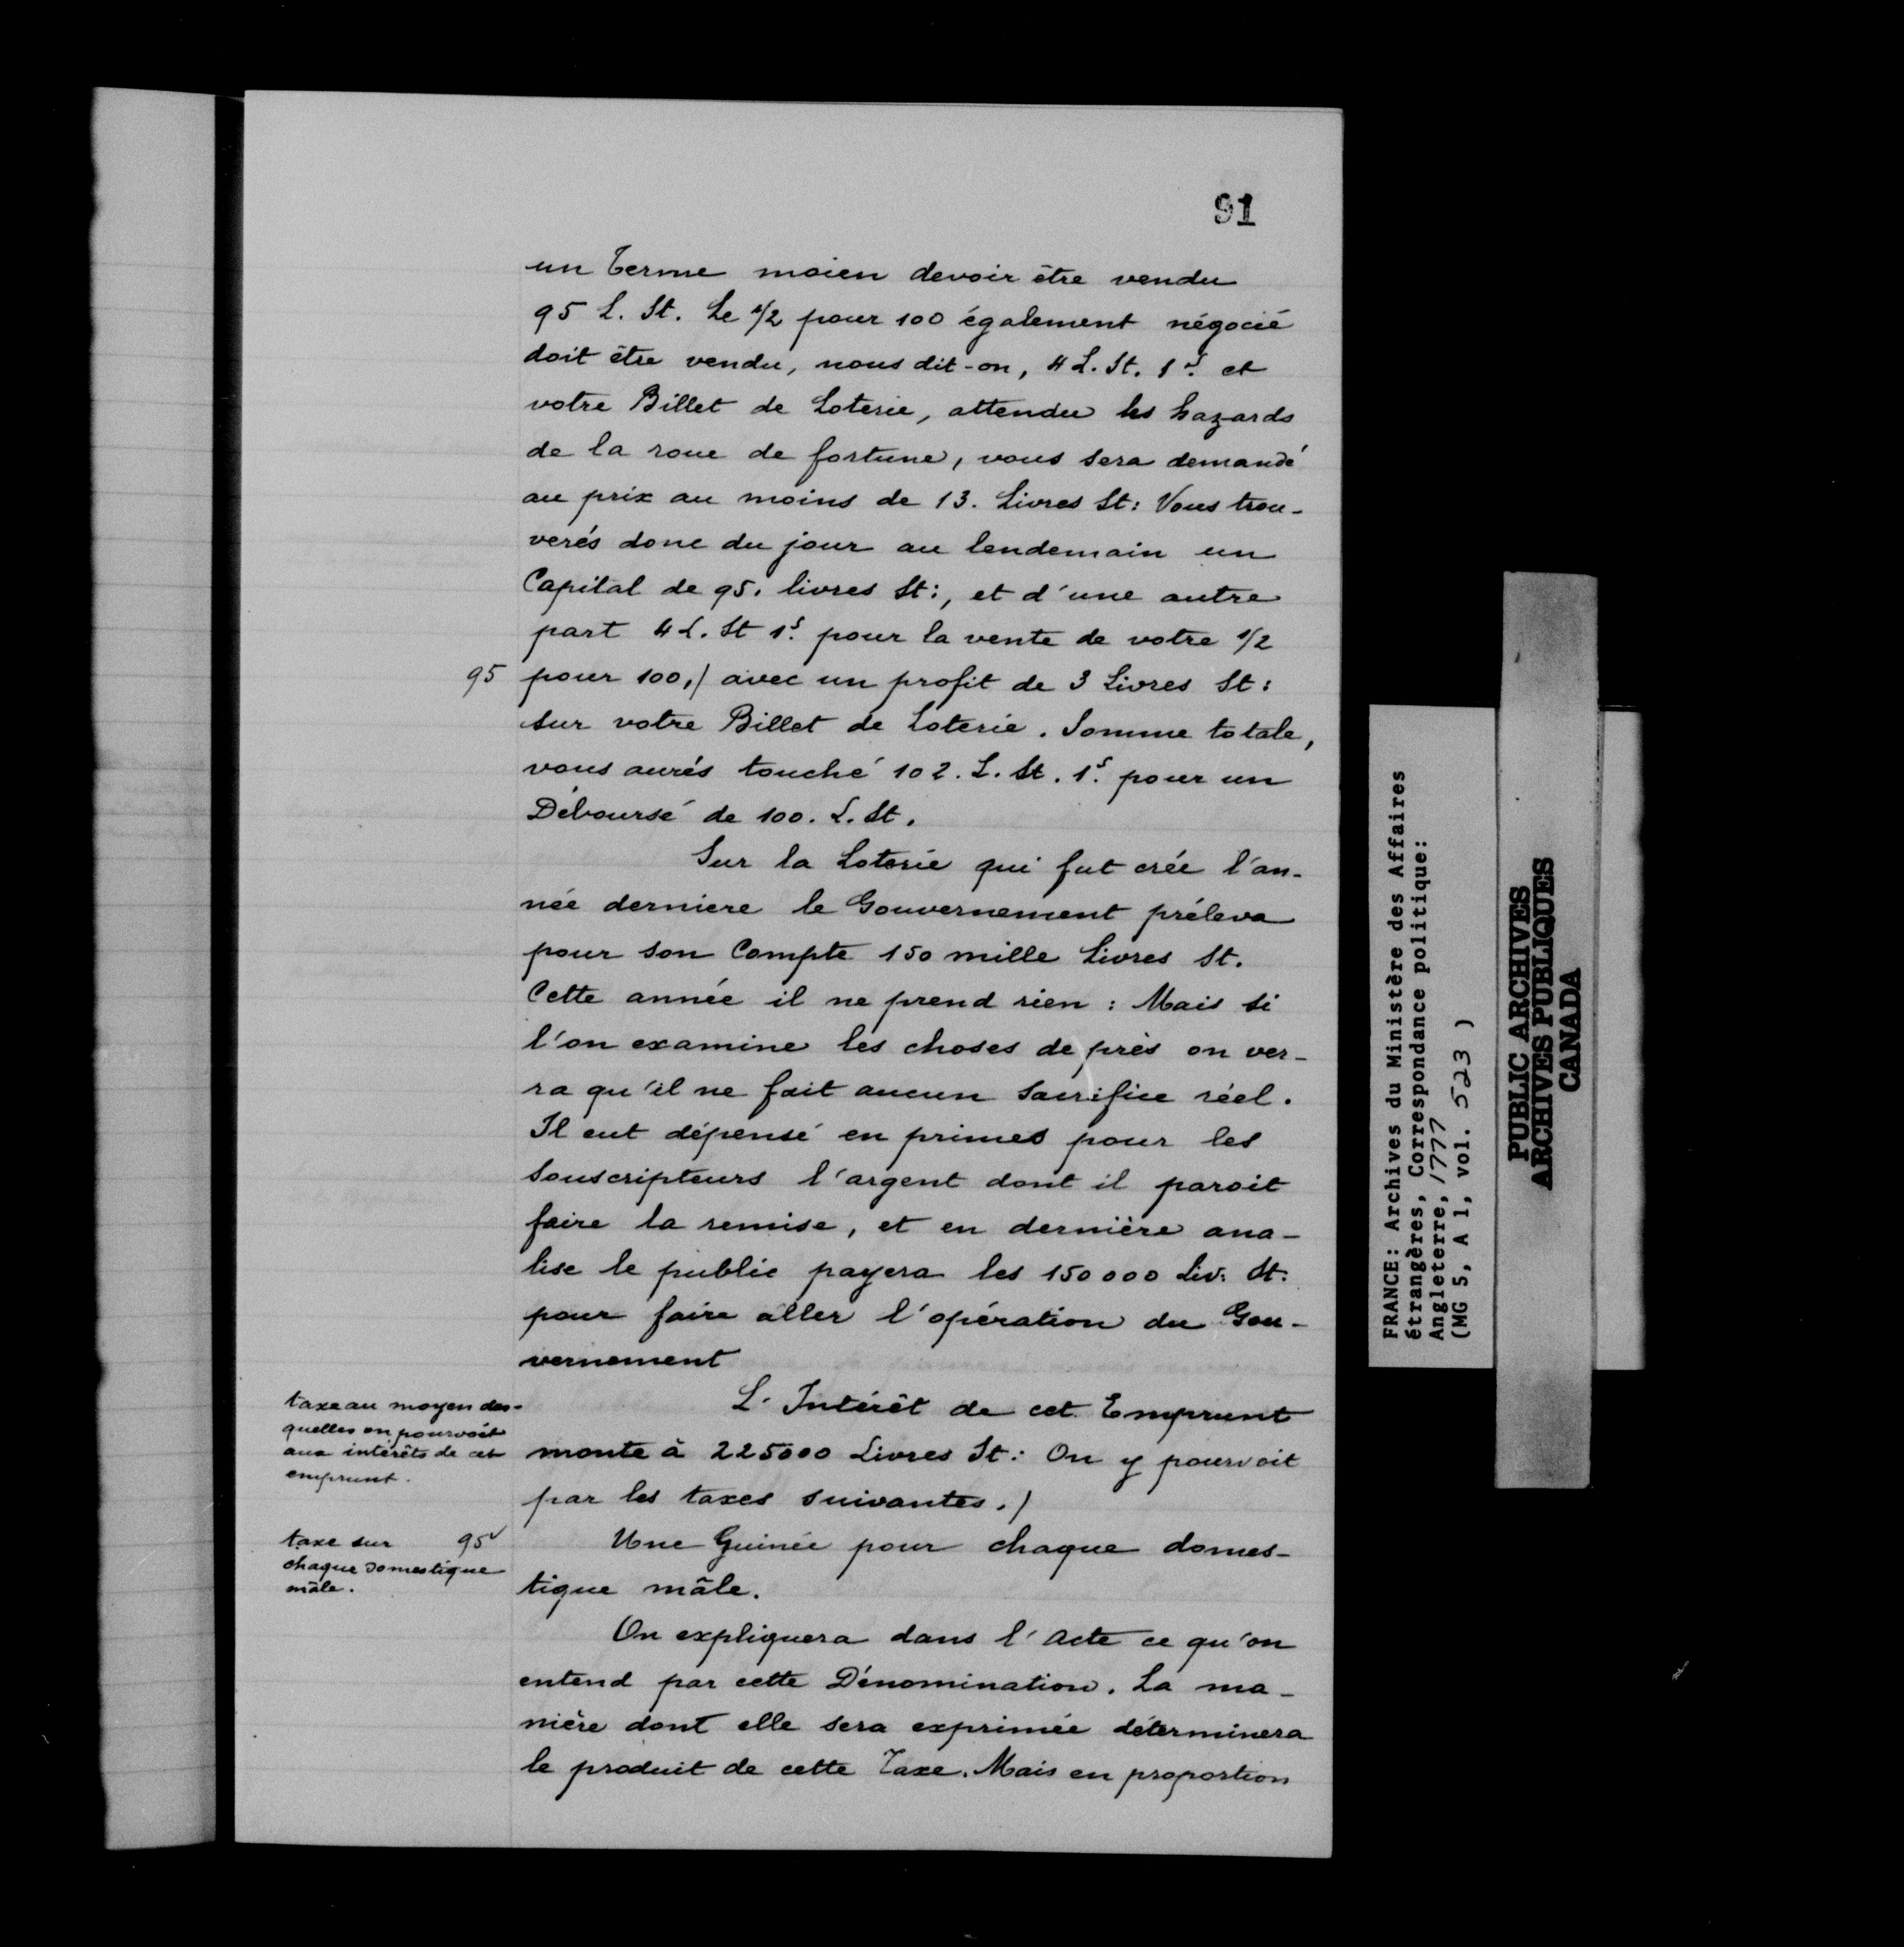 91
un Terme moien devoir être vendu
95 L. St. Le 1/2 pour 100 également négocié
doit être vendu, nous dit-on, 4 L. St. 1s. et
votre Billet de Loterie, attendu les hazards
de la roue de fortune, vous sera demandé
au prix au moins de 13. Livres St: Vous trou-
verés donc du jour au lendemain un
Capital de 95. livres St:, et d'une autre
part 4 L. St 1s. pour la vente de votre 1/2
95 pour 100,/ avec un profit de 3 Livres St:
sur votre Billet de Loterie. Somme totale,
vous aurés touché 102. L. St. 1s. pour un
Déboursé de 100. L. St.
Sur la Loterie qui fut crée l'an-
née derniere le Gouvernement préleva
pour son Compte 150 mille Livres St.
Cette année il ne prend rien : Mais si
l'on examine les choses de près on ver-
ra qu'il ne fait aucun Sacrifice réel.
Il eut dépensé en primes pour les
Souscripteurs l'argent dont il paroit
faire la remise, et en dernière ana-
lise le public payera les 150000 Liv: St:
pour faire aller l'opération du Gou-
vernement
taxe au moyen des-
quelles on pourvoit
aux intérêts de cet
emprunt.
L'Intérêt de cet Emprunt
monte à 225000 Livres St: On y pourvoit
par les taxes suivantes./
taxe sur 95v
chaque domestique
mâle.
Une Guinée pour chaque domes-
tique mâle.
On expliquera dans l'Acte ce qu'on
entend par cette Dénomination. La ma-
nière dont elle sera exprimée déterminera
le produit de cette Taxe. Mais en proportion
FRANCE: Archives du Ministère des Affaires
étrangères, Correspondance politique:
Angleterre, 1777
(MG 5, A 1, vol. 523 )
PUBLIC ARCHIVES
ARCHIVES PUBLIQUES
CANADA